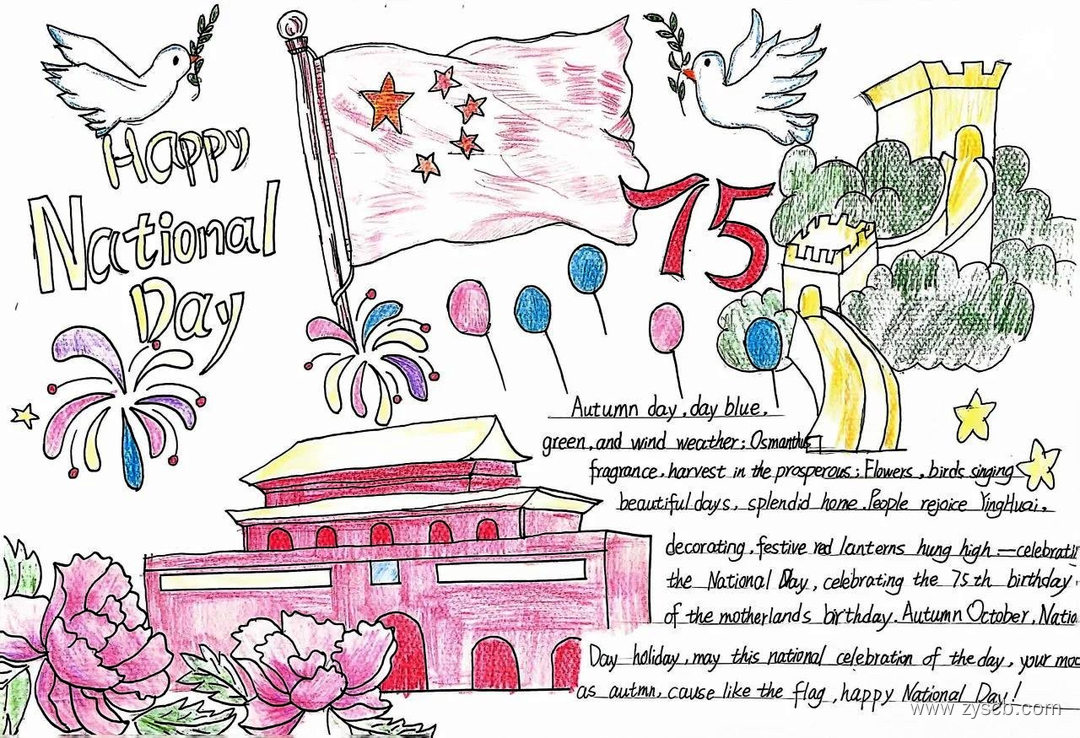 Happy
National
Day
75
Autumn day, day blue,
green, and wind weather; Osmanthus
fragrance, harvest in the prosperous; Flowers, birds singing
beautiful days, splendid home. People rejoice YingHuai,
decorating, festive red lanterns hung high — celebrati
the National Day, celebrating the 75th birthday
of the motherlands birthday. Autumn October, Natio
Day holiday, may this national celebration of the day, your moo
as autmn, cause like the flag, happy National Day!
www.zyscb.com